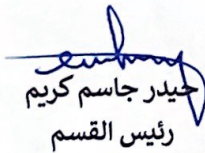 حيدر جاسم كريم
رئيس القسم